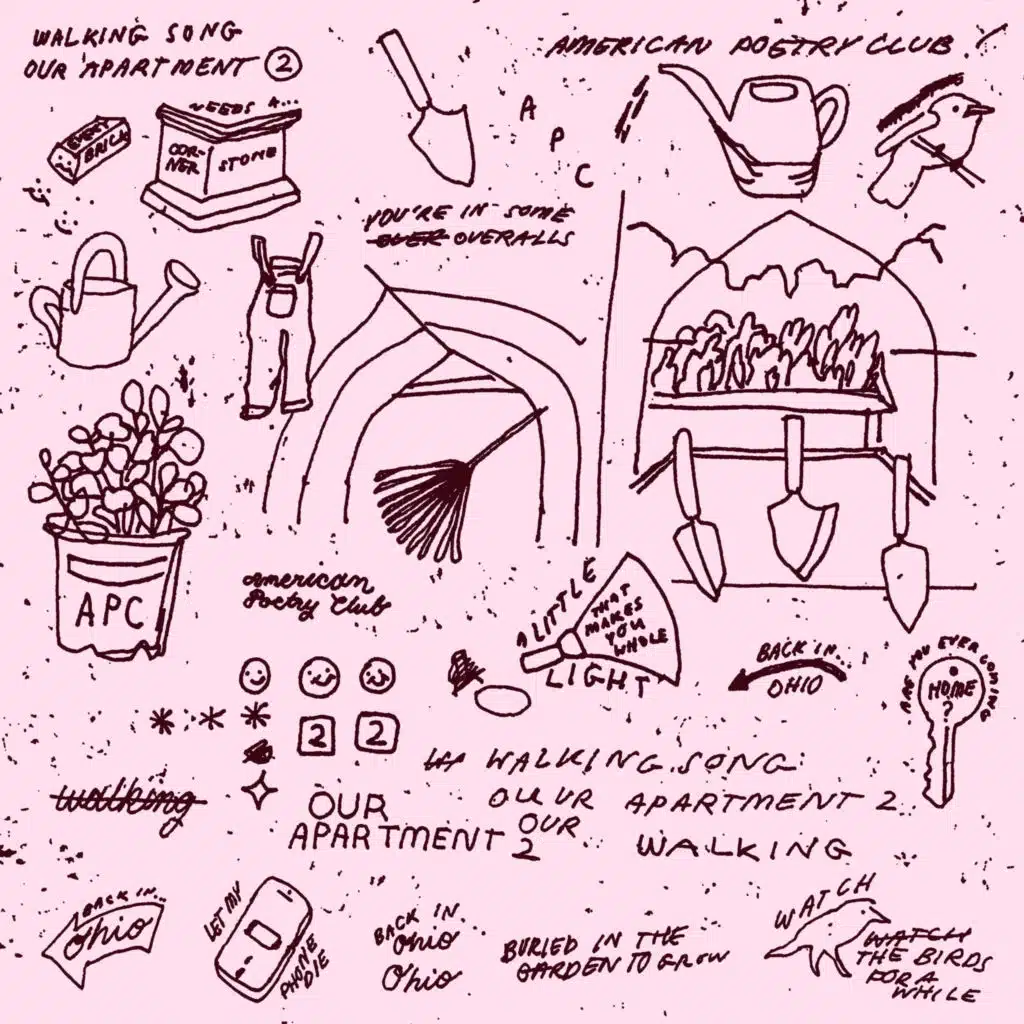 WALKING SONG
OUR APARTMENT 2
AMERICAN POETRY CLUB
NEEDS A...
EVERY
BRICK
COR-
NER
STONE
A
P
C
YOU'RE IN SOME
OVER OVERALLS
APC
American
Poetry Club
A LITTLE
LIGHT
THAT
MAKES
YOU
WHOLE
BACK IN..
OHIO
ARE YOU EVER COMING
HOME
?
2 2
WALKING SONG:
walking
OUR
APARTMENT 2
OUUR APARTMENT 2
OUR
WALKING
BACK IN..
Ohio
LET MY
PHONE
DIE
BACK IN.
Ohio
Ohio
BURIED IN THE
GARDEN TO GROW
WATCH
WATCH
THE BIRDS
FOR A
WHILE